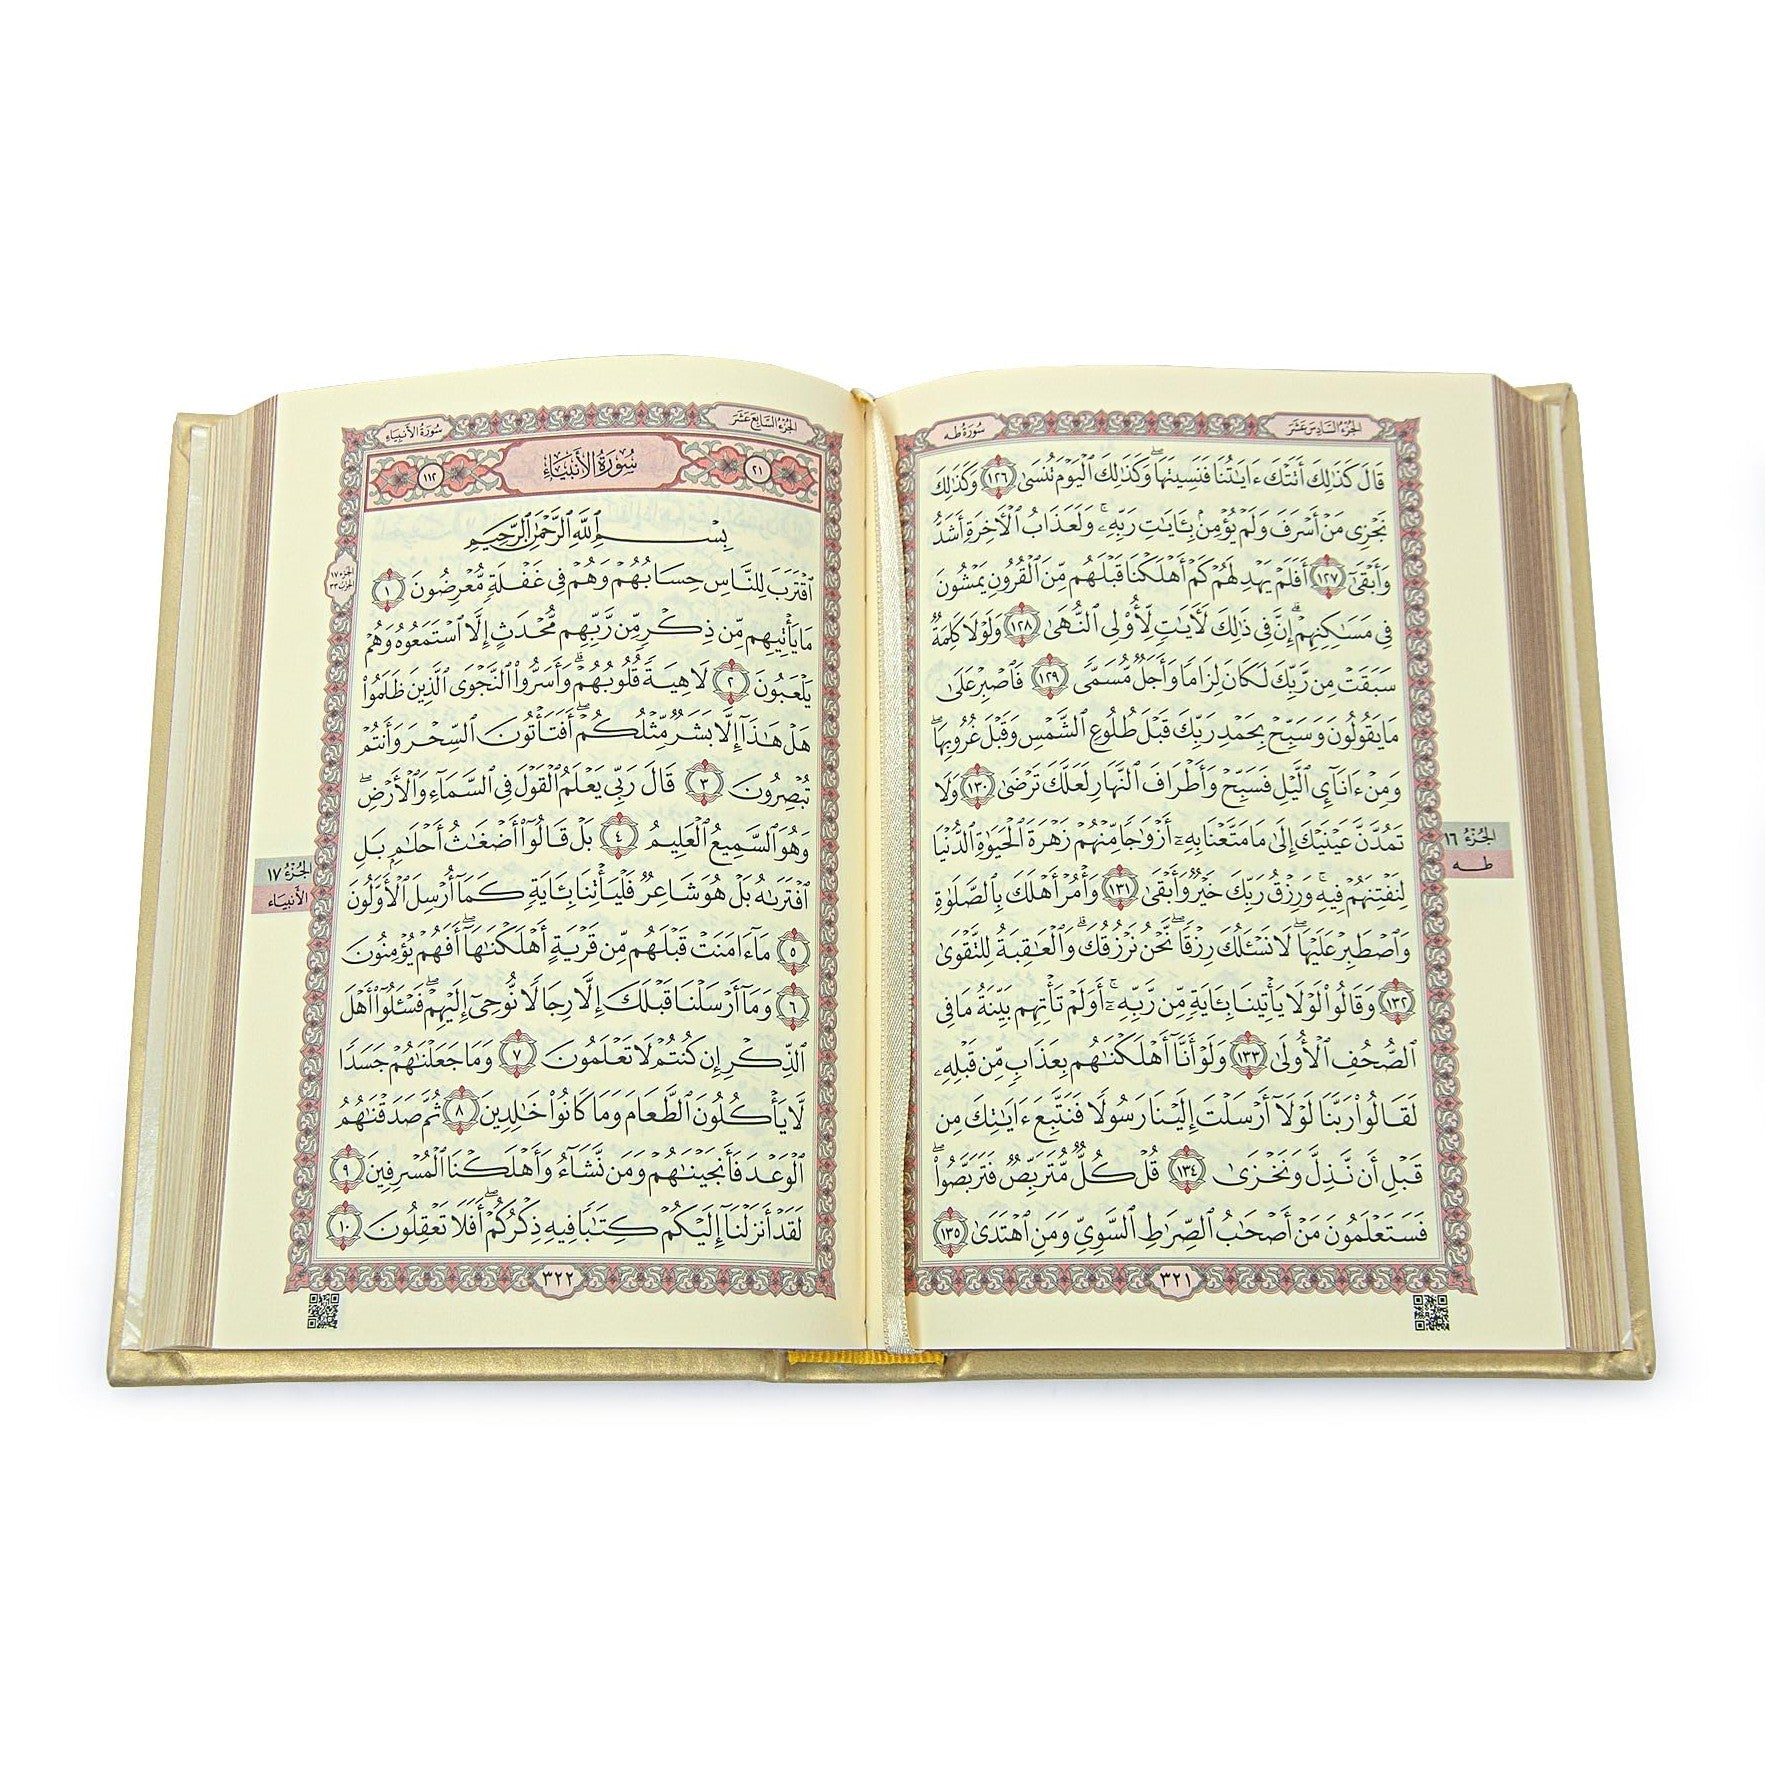 الجُزْءُ السَّادِسَ عَشَرَ
سُورَةُ طه
قَالَ كَذَٰلِكَ أَتَتْكَ ءَايَٰتُنَا فَنَسِيتَهَاۖ وَكَذَٰلِكَ ٱلْيَوْمَ تُنسَىٰ ١٢٦ وَكَذَٰلِكَ
نَجْزِى مَنْ أَسْرَفَ وَلَمْ يُؤْمِنۢ بِـَٔايَٰتِ رَبِّهِۦۚ وَلَعَذَابُ ٱلْأَخِرَةِ أَشَدُّ
وَأَبْقَىٰٓ ١٢٧ أَفَلَمْ يَهْدِ لَهُمْ كَمْ أَهْلَكْنَا قَبْلَهُم مِّنَ ٱلْقُرُونِ يَمْشُونَ
فِى مَسَٰكِنِهِمْۗ إِنَّ فِى ذَٰلِكَ لَأَيَٰتٍ لِّأُو۟لِى ٱلنُّهَىٰ ١٢٨ وَلَوْلَا كَلِمَةٌ
سَبَقَتْ مِن رَّبِّكَ لَكَانَ لِزَامًا وَأَجَلٌ مُّسَمًّى ١٢٩ فَٱصْبِرْ عَلَىٰ
مَا يَقُولُونَ وَسَبِّحْ بِحَمْدِ رَبِّكَ قَبْلَ طُلُوعِ ٱلشَّمْسِ وَقَبْلَ غُرُوبِهَاۖ
وَمِنْ ءَانَآئِ ٱلَّيْلِ فَسَبِّحْ وَأَطْرَافَ ٱلنَّهَارِ لَعَلَّكَ تَرْضَىٰ ١٣٠ وَلَا
تَمُدَّنَّ عَيْنَيْكَ إِلَىٰ مَا مَتَّعْنَا بِهِۦٓ أَزْوَٰجًا مِّنْهُمْ زَهْرَةَ ٱلْحَيَوٰةِ ٱلدُّنْيَا
لِنَفْتِنَهُمْ فِيهِۚ وَرِزْقُ رَبِّكَ خَيْرٌ وَأَبْقَىٰ ١٣١ وَأْمُرْ أَهْلَكَ بِٱلصَّلَوٰةِ
وَٱصْطَبِرْ عَلَيْهَاۖ لَا نَسْـَٔلُكَ رِزْقًاۖ نَّحْنُ نَرْزُقُكَۗ وَٱلْعَٰقِبَةُ لِلتَّقْوَىٰ
١٣٢ وَقَالُوا۟ لَوْلَا يَأْتِينَا بِـَٔايَةٍ مِّن رَّبِّهِۦٓۚ أَوَلَمْ تَأْتِهِم بَيِّنَةُ مَا فِى
ٱلصُّحُفِ ٱلْأُولَىٰ ١٣٣ وَلَوْ أَنَّآ أَهْلَكْنَٰهُم بِعَذَابٍ مِّن قَبْلِهِۦ
لَقَالُوا۟ رَبَّنَا لَوْلَآ أَرْسَلْتَ إِلَيْنَا رَسُولًا فَنَتَّبِعَ ءَايَٰتِكَ مِن
قَبْلِ أَن نَّذِلَّ وَنَخْزَىٰ ١٣٤ قُلْ كُلٌّ مُّتَرَبِّصٌ فَتَرَبَّصُوا۟ۖ
فَسَتَعْلَمُونَ مَنْ أَصْحَٰبُ ٱلصِّرَٰطِ ٱلسَّوِىِّ وَمَنِ ٱهْتَدَىٰ ١٣٥
٣٢١
الجُزْءُ ١٦
طه
الجُزْءُ السَّابِعَ عَشَرَ
سُورَةُ الأَنْبِيَاءِ
٢١
سُورَةُ الأَنْبِيَاءِ
١١٢
بِسْمِ ٱللَّهِ ٱلرَّحْمَٰنِ ٱلرَّحِيمِ
ٱقْتَرَبَ لِلنَّاسِ حِسَابُهُمْ وَهُمْ فِى غَفْلَةٍ مُّعْرِضُونَ ١
مَا يَأْتِيهِم مِّن ذِكْرٍ مِّن رَّبِّهِم مُّحْدَثٍ إِلَّا ٱسْتَمَعُوهُ وَهُمْ
يَلْعَبُونَ ٢ لَاهِيَةً قُلُوبُهُمْۗ وَأَسَرُّوا۟ ٱلنَّجْوَى ٱلَّذِينَ ظَلَمُوا۟
هَلْ هَٰذَآ إِلَّا بَشَرٌ مِّثْلُكُمْۖ أَفَتَأْتُونَ ٱلسِّحْرَ وَأَنتُمْ
تُبْصِرُونَ ٣ قَالَ رَبِّى يَعْلَمُ ٱلْقَوْلَ فِى ٱلسَّمَآءِ وَٱلْأَرْضِۖ
وَهُوَ ٱلسَّمِيعُ ٱلْعَلِيمُ ٤ بَلْ قَالُوٓا۟ أَضْغَٰثُ أَحْلَٰمٍ بَلِ
ٱفْتَرَىٰهُ بَلْ هُوَ شَاعِرٌ فَلْيَأْتِنَا بِـَٔايَةٍ كَمَآ أُرْسِلَ ٱلْأَوَّلُونَ
٥ مَآ ءَامَنَتْ قَبْلَهُم مِّن قَرْيَةٍ أَهْلَكْنَٰهَآۖ أَفَهُمْ يُؤْمِنُونَ
٦ وَمَآ أَرْسَلْنَا قَبْلَكَ إِلَّا رِجَالًا نُّوحِىٓ إِلَيْهِمْۖ فَسْـَٔلُوٓا۟ أَهْلَ
ٱلذِّكْرِ إِن كُنتُمْ لَا تَعْلَمُونَ ٧ وَمَا جَعَلْنَٰهُمْ جَسَدًا
لَّا يَأْكُلُونَ ٱلطَّعَامَ وَمَا كَانُوا۟ خَٰلِدِينَ ٨ ثُمَّ صَدَقْنَٰهُمُ
ٱلْوَعْدَ فَأَنجَيْنَٰهُمْ وَمَن نَّشَآءُ وَأَهْلَكْنَا ٱلْمُسْرِفِينَ ٩
لَقَدْ أَنزَلْنَآ إِلَيْكُمْ كِتَٰبًا فِيهِ ذِكْرُكُمْۖ أَفَلَا تَعْقِلُونَ ١٠
٣٢٢
الجُزْءُ ١٧
الحِزْبُ ٣٣
الجُزْءُ ١٧
الأَنْبِيَاء